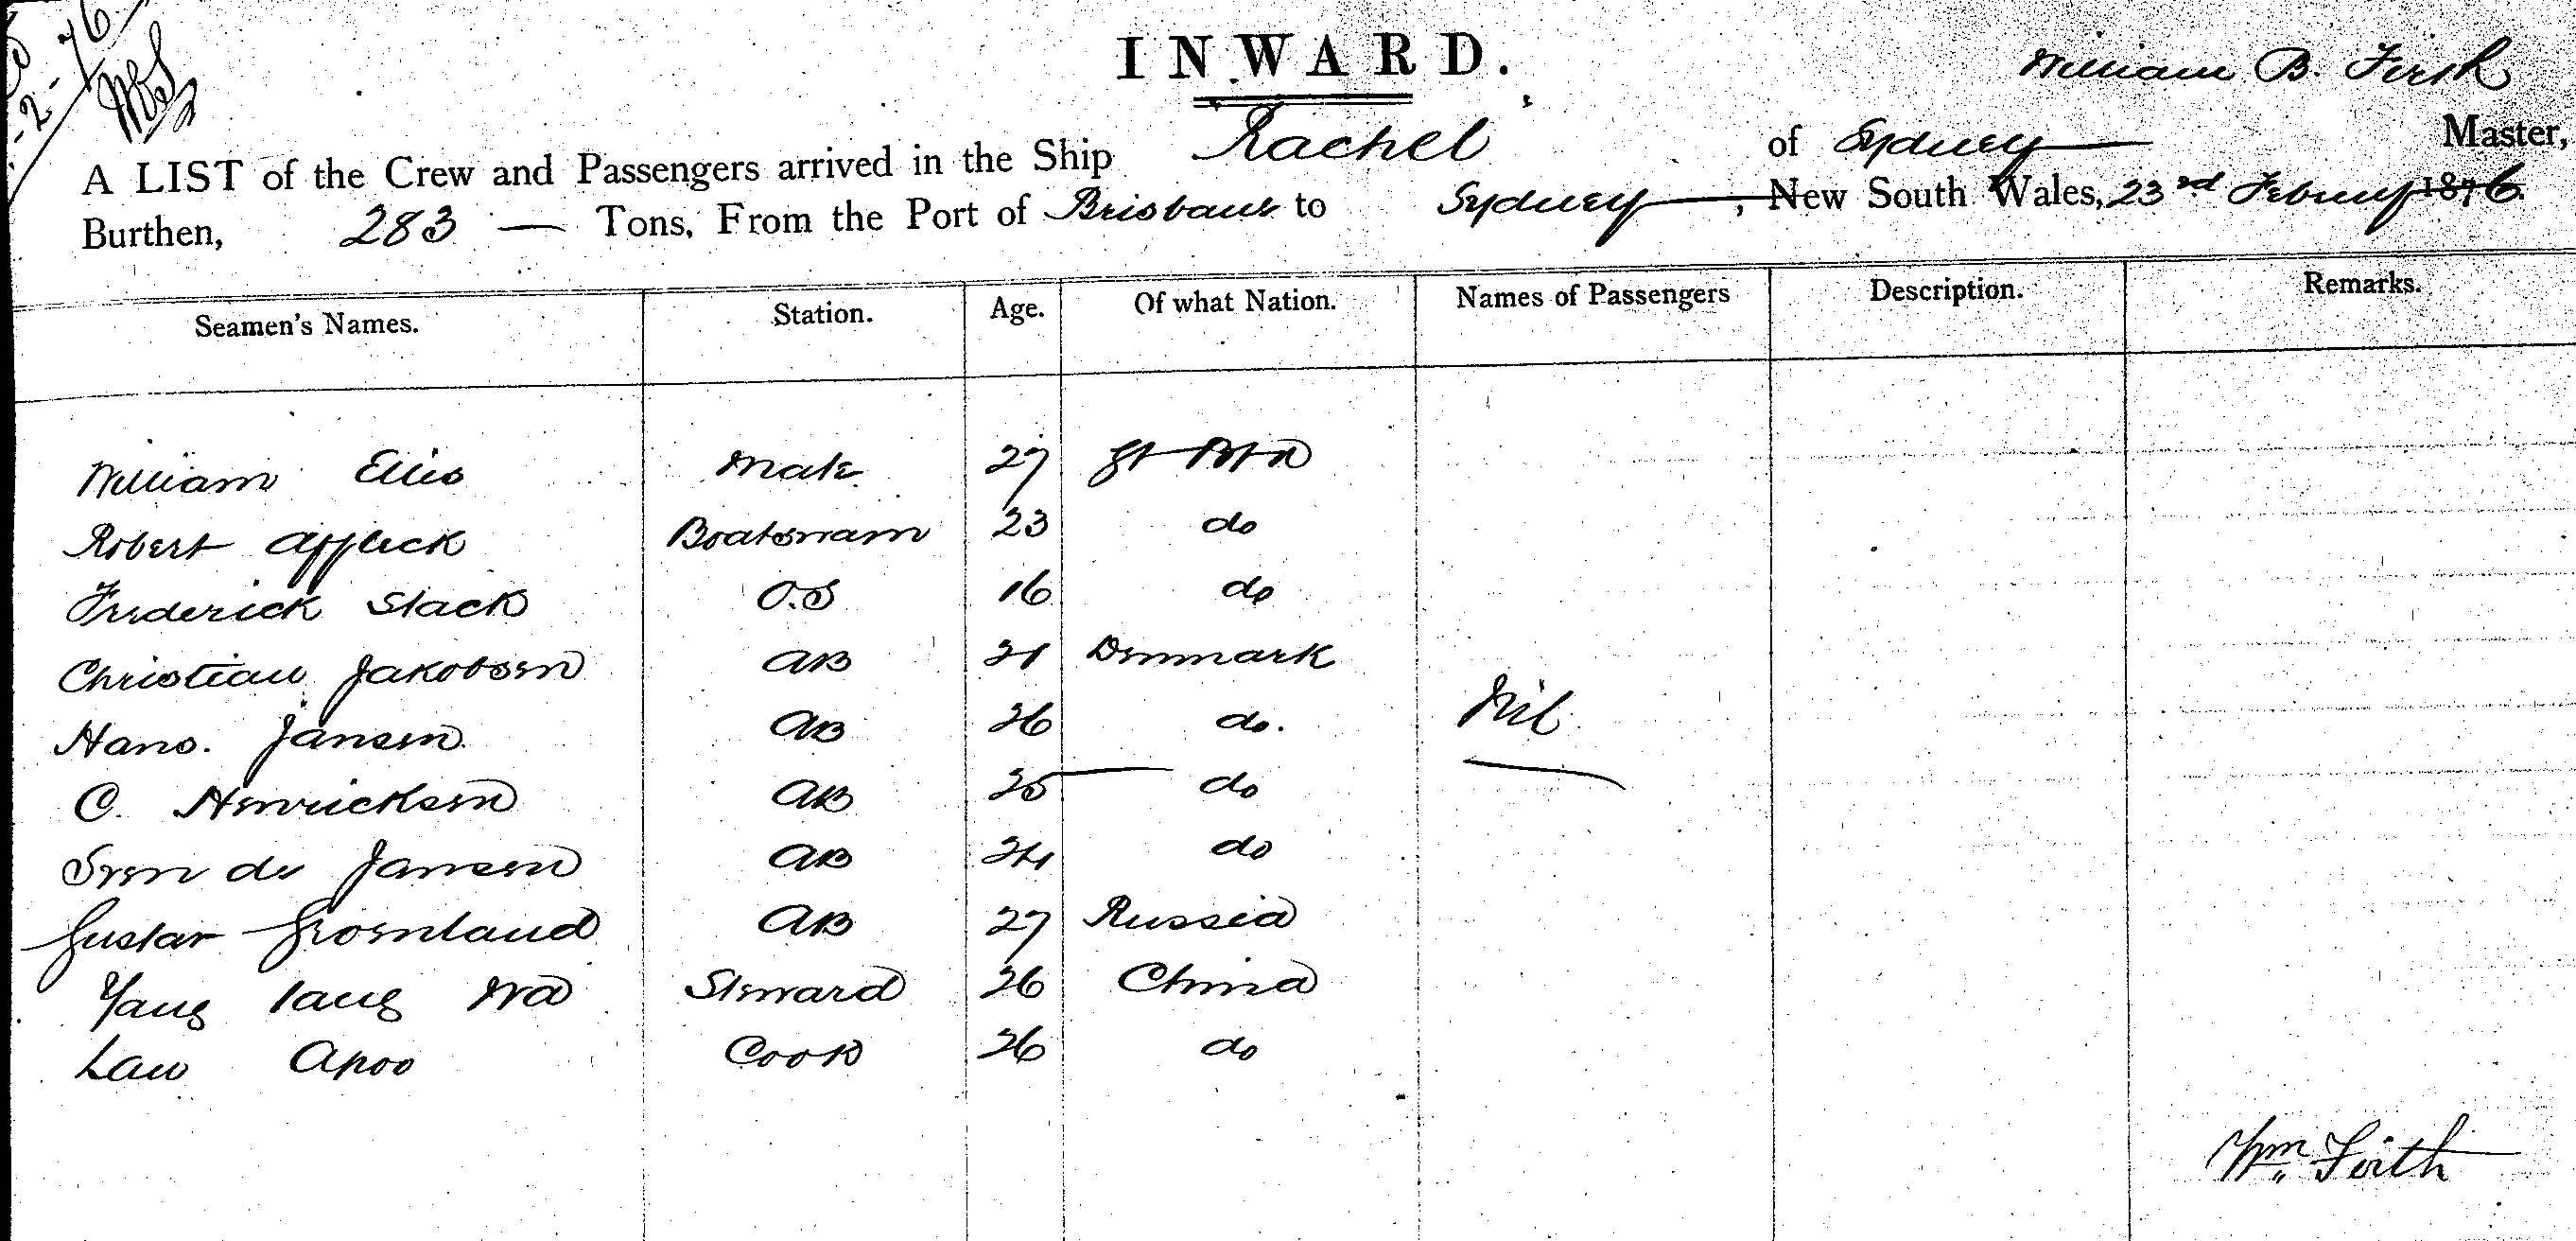 INWARD.
William B. Firth
A LIST of the Crew and Passengers arrived in the Ship Rachel of Sydney Master,
Burthen, 283 — Tons, From the Port of Brisbane to Sydney, New South Wales, 23rd February 1876.
Seamen's Names. Station. Age. Of what Nation. Names of Passengers Description. Remarks.
William Ellis Mate 27 Gt Btn
Robert Affleck Boatswain 23 do
Frederick Slack O.S 16 do
Christian Jakobsen AB 21 Denmark
Hans. Jansen AB 26 do. Nil
C. Henricksen AB 25 do
Sven de Jansen AB 24 do
Gustav Groenlund AB 27 Russia
Yang Wa Steward 26 China
Law Apoo Cook 26 do
Wm Firth